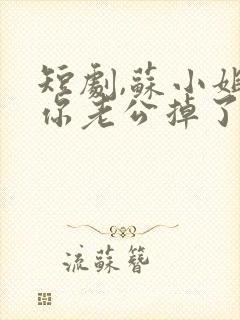 短劇,蘇小姐
你老公掉了
流蘇簪